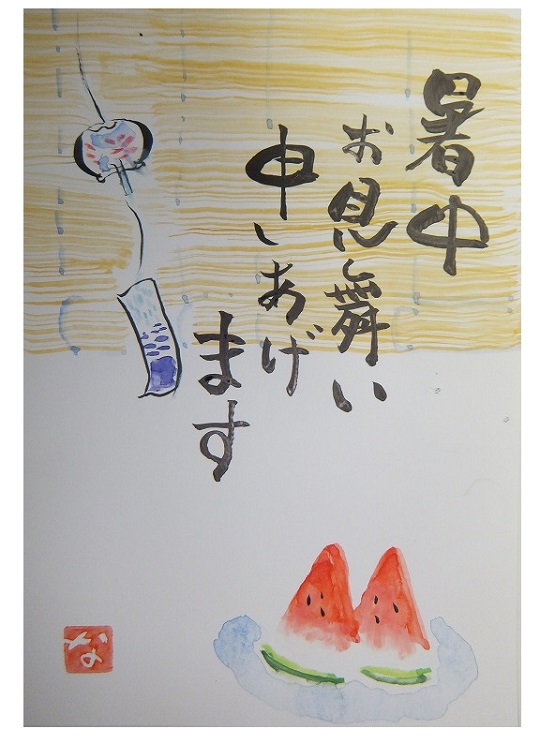 暑中
お見舞い
申しあげ
ます